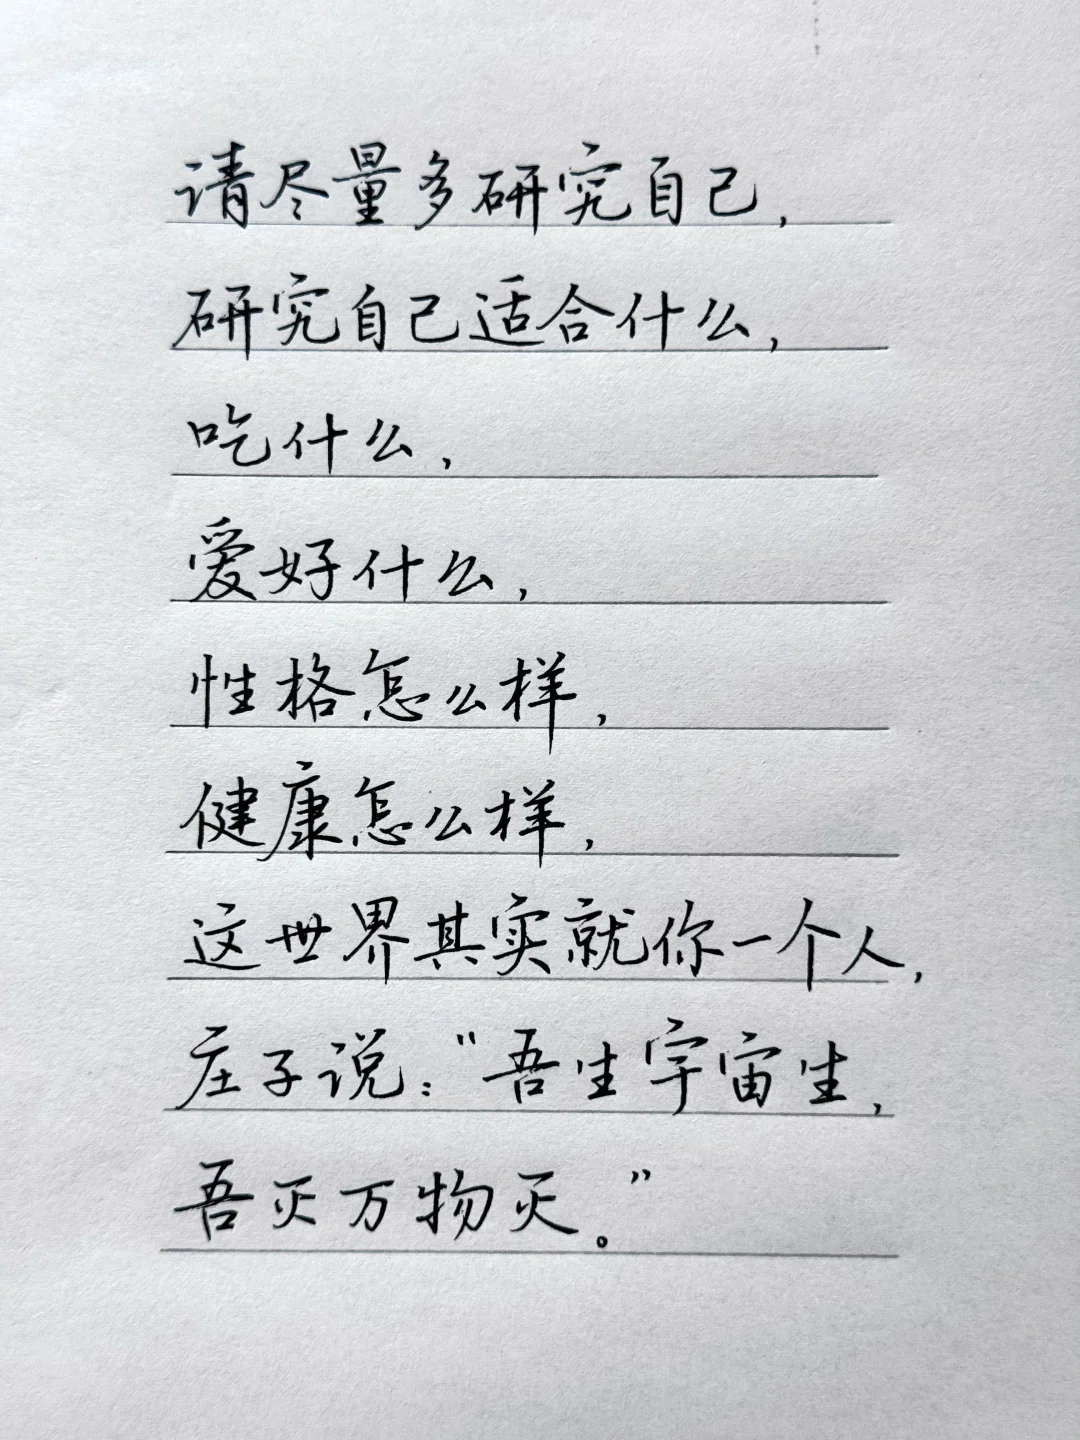 请尽量多研究自己,
研究自己适合什么,
吃什么,
爱好什么,
性格怎么样,
健康怎么样,
这世界其实就你一个人,
庄子说:“吾生宇宙生,
吾灭万物灭。”